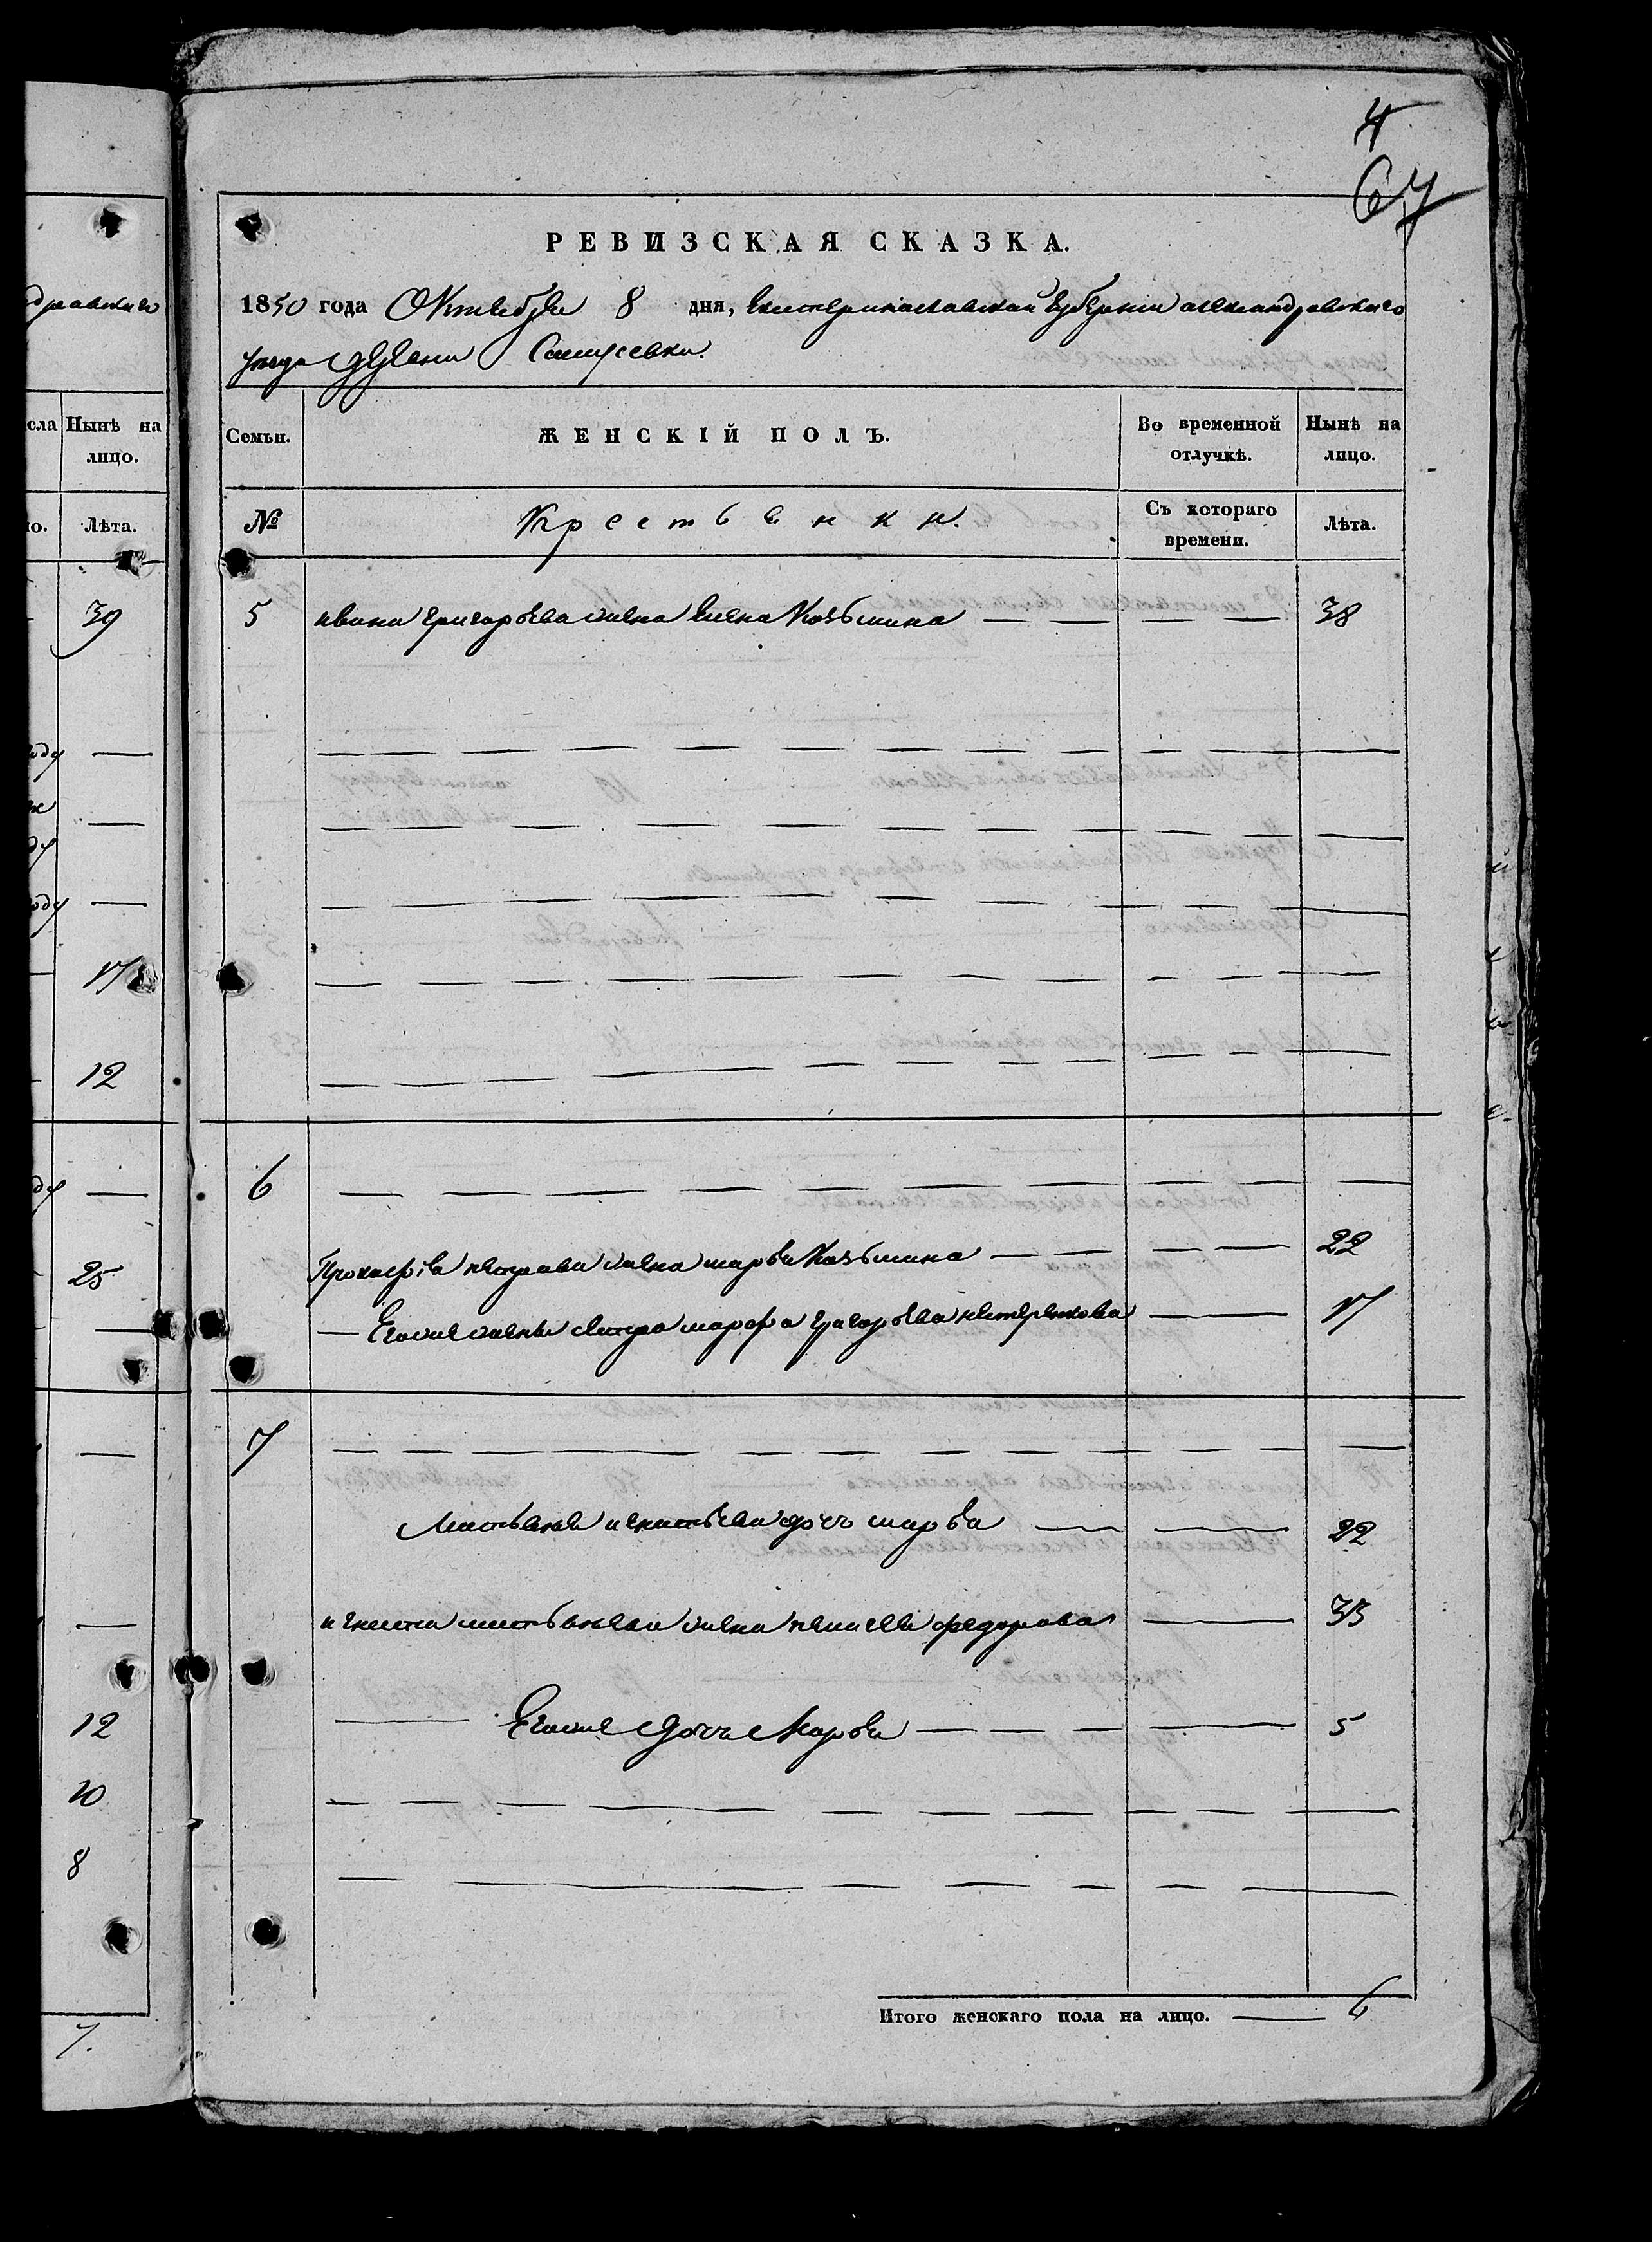 4
67
РЕВИЗСКАЯ СКАЗКА.
1850 года Октября 8 дня, Екатеринославской Губернии александровского
уезда деревни
Семьи. ЖЕНСКІЙ ПОЛЪ. Во временной отлучкѣ. Нынѣ на лицо.
№ Крестьянки. Съ котораго времени. Лѣта.
5 ивана григорьева жена Елена Козьмина 38
6
петрова жена марья Козьмина 22
Егоже жены сестра марфа григорьева 17
7
дочь марья 22
жена федорова 33
Егоже дочь Марья 5
Итого женскаго пола на лицо. 6
дравскаго
сла Нынѣ на лицо.
ло. Лѣта.
39
оду
ду
оду
17
12
ду
25
12
10
8
7.